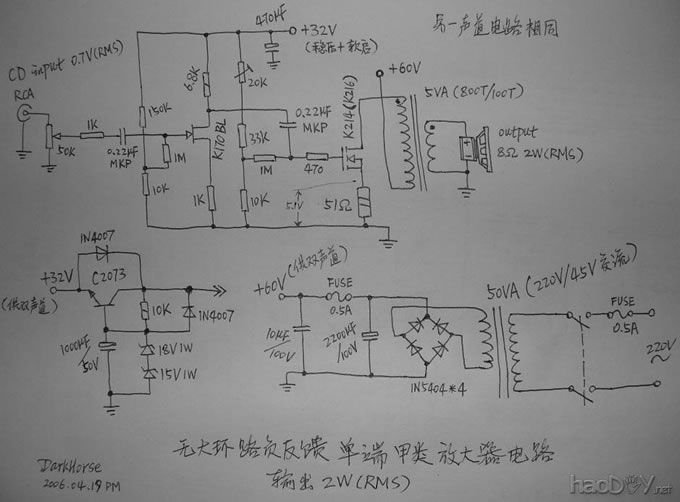 470µF
+32V
(稳压+软启)
另一声道电路相同
CD input 0.7V(RMS)
RCA
50K
1K
0.22µF
MKP
150K
1M
10K
6.8K
K170BL
1K
20K
33K
1M
10K
0.22µF
MKP
470
K214(K216)
5.1V
51Ω
+60V
5VA(800T/100T)
output
8Ω 2W(RMS)
1N4007
+32V
(供双声道)
C2073
10K
1N4007
1000µF
50V
18V1W
15V1W
+60V(供双声道)
FUSE
0.5A
10µF
/100V
2200µF
/100V
IN5404*4
50VA(220V/45V交流)
FUSE
0.5A
220V
~
无大环路负反馈 单端甲类放大器电路
输出2W(RMS)
DarkHorse
2006.04.19 PM
haoDIY.net